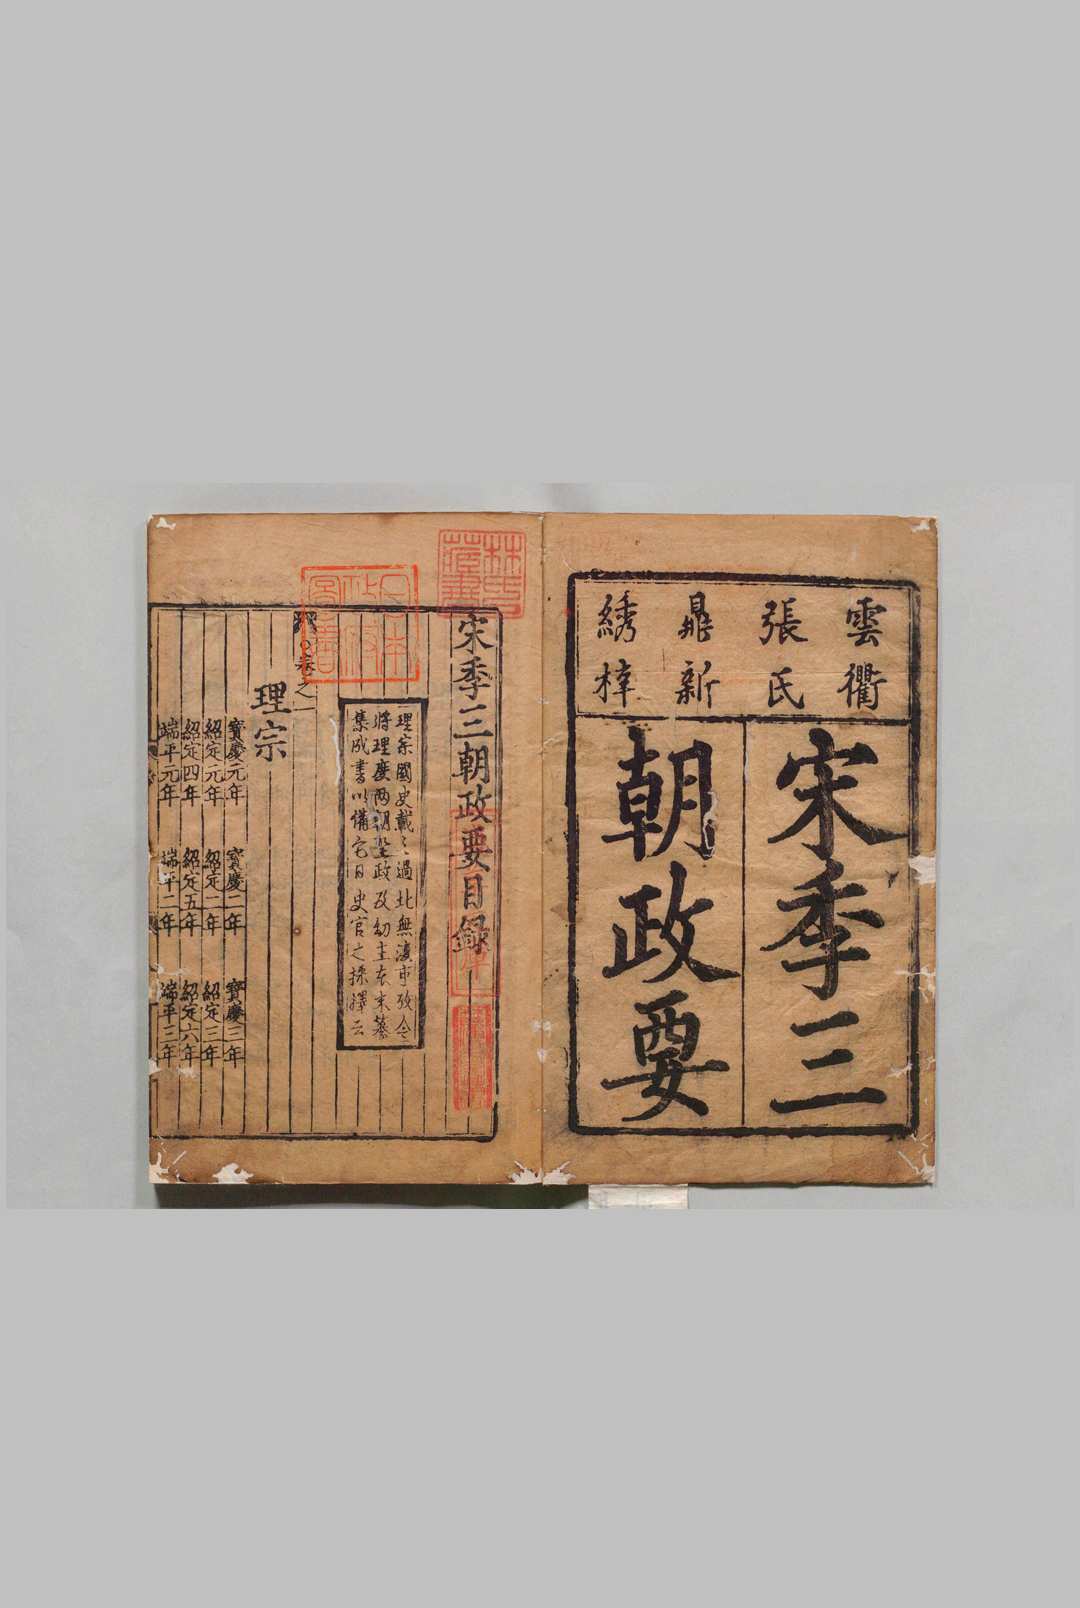 雲衢
張氏
鼎新
綉梓
宋季三
朝政要
宋季三朝政要目錄
理宗國史載之過北無復可攷今
將理度兩朝聖政及幼主本末纂
集成書以備它日史官之採擇云
卷之一
理宗
寶慶元年 寶慶二年 寶慶三年
紹定元年 紹定二年 紹定三年
紹定四年 紹定五年 紹定六年
端平元年 端平二年 端平三年
林氏
藏書
日本
政府
圖書